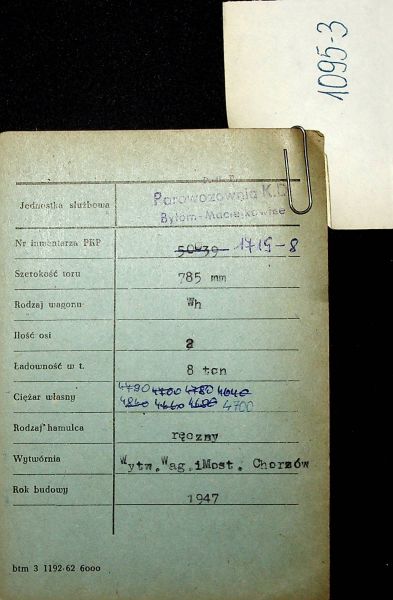 1095-3
Jednostka służbowa Parowozownia K.D.
Bytom-Maciejkowice
Nr inwentarza PKP 50439 1719-8
Szerokość toru 785 mm
Rodzaj wagonu Wh
Ilość osi 2
Ładowność w t. 8 ton
Ciężar własny 4790 4700 4780 4640
4840 4660 4680 4700
Rodzaj hamulca ręczny
Wytwórnia Wytw. Wag. i Most. Chorzów
Rok budowy 1947
btm 3 1192-62 6000